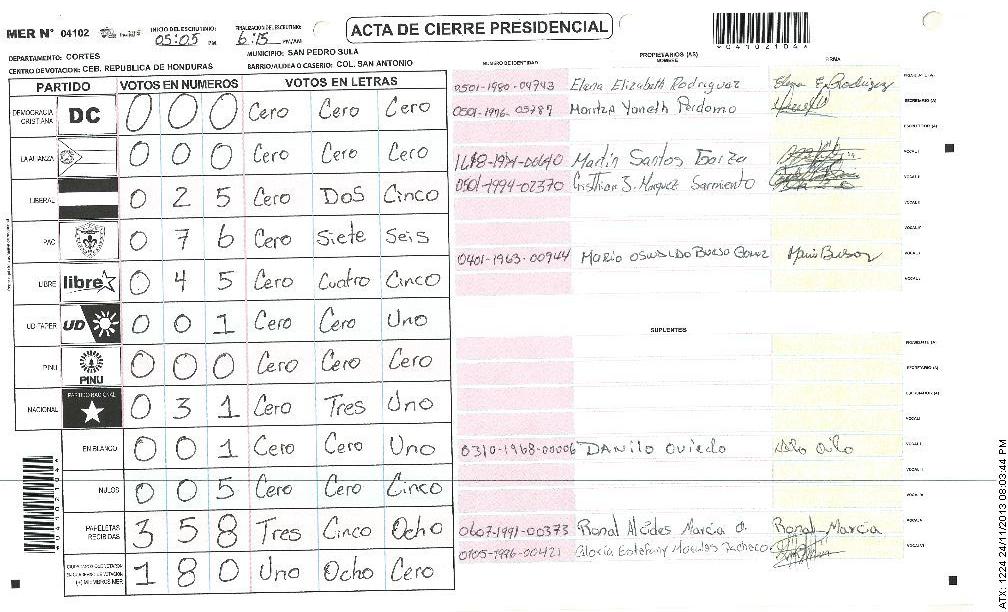 MER N° 04102 INICIO DEL ESCRUTINIO: 05:05 PM FINALIZACION DEL ESCRUTINIO: 6:15 PM/AM ACTA DE CIERRE PRESIDENCIAL
*04102104*
DEPARTAMENTO: CORTES MUNICIPIO: SAN PEDRO SULA
CENTRO DE VOTACION: CEB. REPUBLICA DE HONDURAS BARRIO/ALDEA O CASERIO: COL. SAN ANTONIO
PARTIDO VOTOS EN NUMEROS VOTOS EN LETRAS
DEMOCRACIA CRISTIANA DC 0 0 0 Cero Cero Cero
LA ALIANZA 0 0 0 Cero Cero Cero
LIBERAL 0 2 5 Cero Dos Cinco
PAC 0 7 6 Cero Siete Seis
LIBRE libre 0 4 5 Cero Cuatro Cinco
UD FAPER UD 0 0 1 Cero Cero Uno
PINU PINU 0 0 0 Cero Cero Cero
NACIONAL PARTIDO NACIONAL 0 3 1 Cero Tres Uno
EN BLANCO 0 0 1 Cero Cero Uno
NULOS 0 0 5 Cero Cero Cinco
PAPELETAS RECIBIDAS 3 5 8 Tres Cinco Ocho
(+) MIEMBROS MER 1 8 0 Uno Ocho Cero
NUMERO DE IDENTIDAD PROPIETARIOS (AS) NOMBRE FIRMA
0501-1980-04743 Elena Elizabeth Rodriguez Elena E. Rodriguez PRESIDENTE (A)
0501-1996-05787 Maritza Yaneth Perdomo SECRETARIO (A)
ESCRUTADOR (A)
Martin Santos VOCAL I
0501-1994-02370 Cristhian J. Marquez Sarmiento VOCAL II
0401-1963-00944 MARIO OSWALDO BUESO Mario Bueso
SUPLENTES
PRESIDENTE (A)
SECRETARIO (A)
ESCRUTADOR (A)
VOCAL I
0310-1968-00006 DANilo Oviedo
0607-1991-00373 Ronal Alcides Marcia O. Ronal Marcia
0105-1996-00421 Gloria Estefany Morales Pacheco
ATX: 1224 24/11/2013 08:03:44 PM